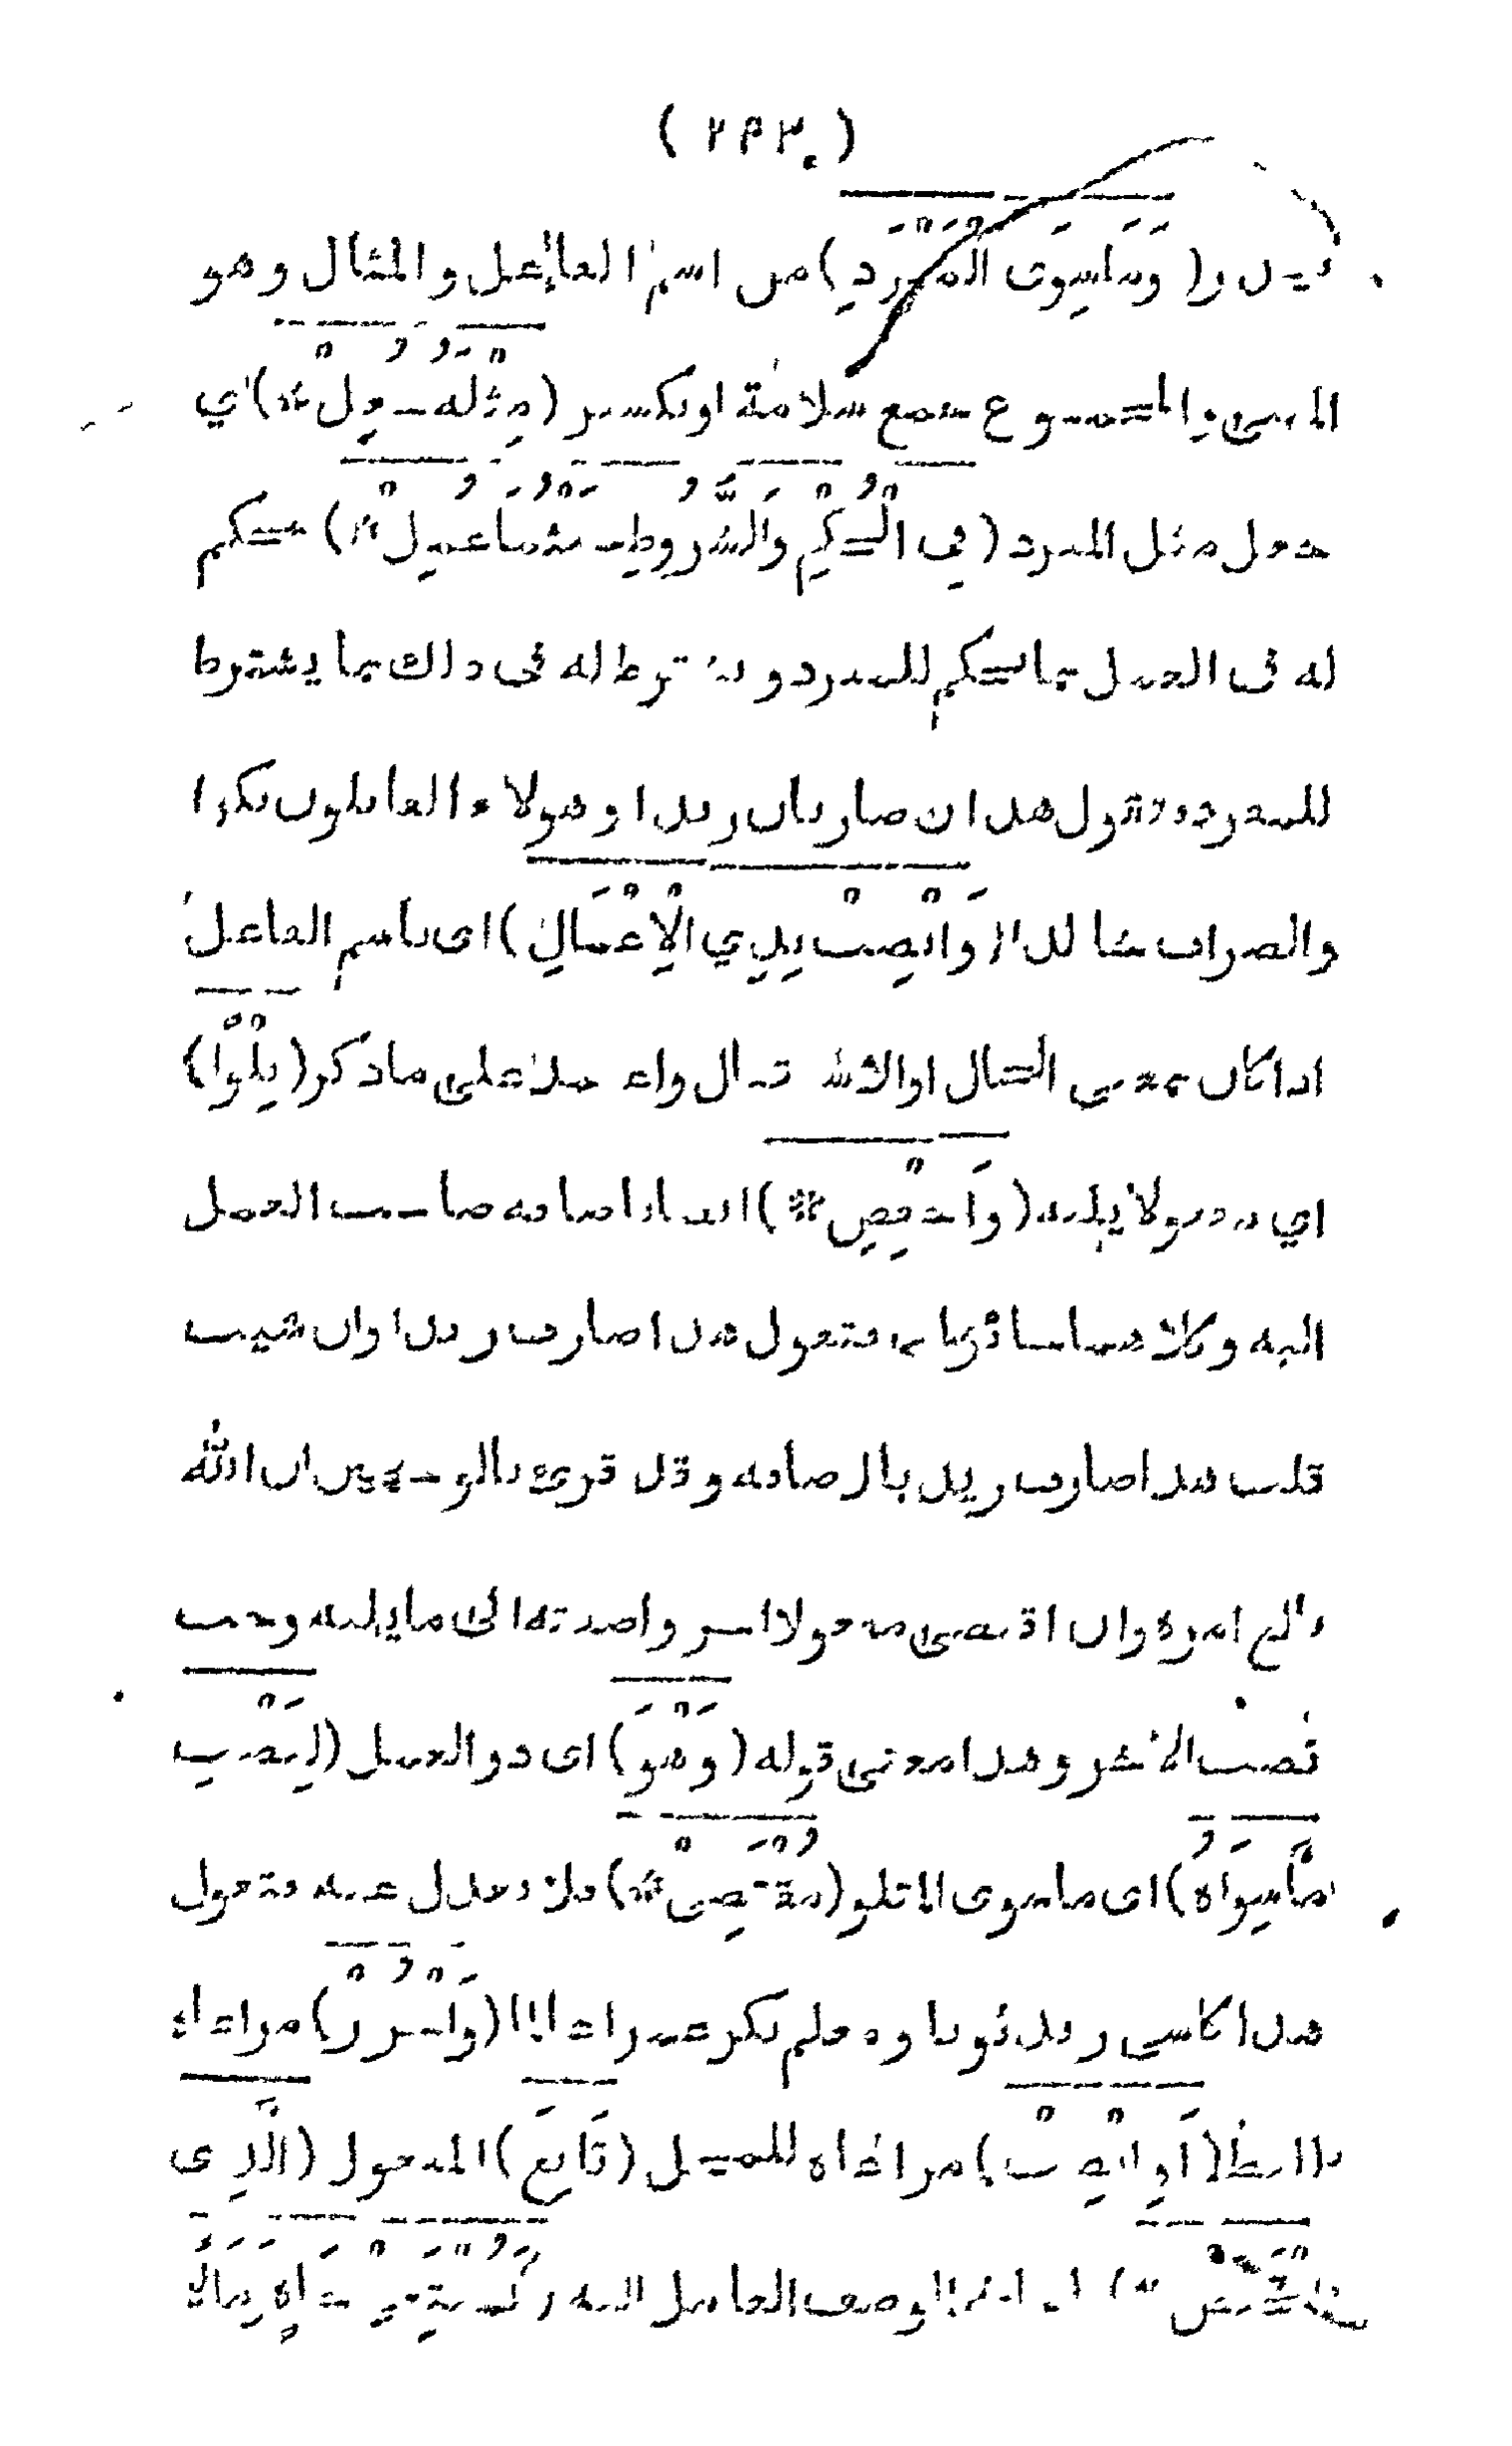 (٢٩٣)
(وَمَا سِوَى الْمُفْرَدِ) من اسم الفاعل والمثال وهو
المثنى والمجموع جمع سلامة او تكسير (مِثْلَهُ جُعِلْ *) اي
جعل مثل المفرد (فِي الْحُكْمِ وَالشُّرُوطِ حَيْثُمَا عَمِلْ *) فيحكم
له فى العمل بما يحكم للمفرد ويشترط له فى ذلك بما يشترط
للمفرد فتقول هذان ضاربان زيدا وهولاء القاتلون بكرا
والضراب خالدا (وَانْصِبْ بِذِي الْإِعْمَالِ) اى باسم الفاعل
اذا كان بمعنى الحال او الاستقبال واعتمد على ماذكر (تِلْوًا)
اي مفعولا يليه (وَاخْفِضِ *) ايضا باضافة صاحب العمل
اليه وكلاهما سائغان فتقول هذا ضارب زيدا وان شئت
قلت هذا ضارب زيد بالاضافة وقد قرئ بالوجهين ان الله
بالغ امره وان اقتضى مفعولا اخر واضفته الى ما يليه وجب
نصب الاخر وهذا معنى قوله (وَهْوَ) اى ذو العمل (لِنَصْبِ
مَا سِوَاهُ) اى ما سوى التلو (مُقْتَضِى *) فلا يعدل عنه فتقول
هذا كاسى زيد ثوبا ومعلم بكر عمرا عالما (وَاجْرُرْ) مراعاة
للفظ (اَوِ انْصِبْ) مراعاة للمحل (تَابِعَ) المفعول (الَّذِى
انْخَفَضْ *) الوصف العامل اليه (كَمُبْتَغِى جَاهٍ وَمَالًا